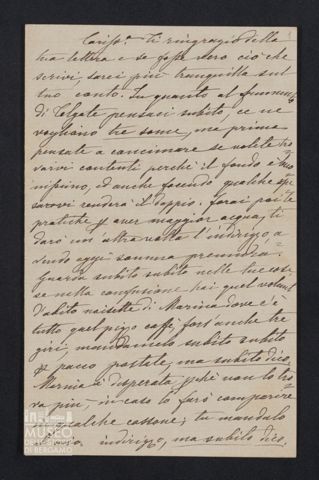 Cariss.ª Ti ringrazio della
tua lettera e se fosse vero ciò che
scrivi, sarei più tranquilla sul
tuo conto. In quanto al
di Telgate pensaci subito, ce ne
vogliono tre some, ma prima
pensate a concimare se volete tro
varvi contenti perchè il fondo è
ed anche facendo qualche
renderà il doppio. Farai poi le
pratiche p aver maggior acqua, ti
darò un'altra volta l'indirizzo, a
vendo oggi somma premura.
Guarda subito subito nelle tue cose,
se nella confusione hai quel volant
d'abito noisette di Marina dove c'è
tutto quel pizzo caffè, fors'anche tre
giri, mandamelo subito subito
p pacco postale, ma subito dico,
Marina è disperata, perchè non lo tro
va più, in caso lo farò comparire
in qualche cassone; tu mandalo
indirizzo, ma subito dico.
MUSEO
DI BERGAMO